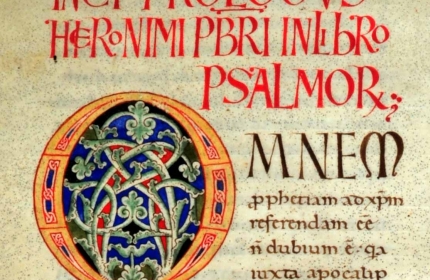 INCP PROLOGVS
HERONIMI PBRI IN LIBRO
PSALMOR
OMNEM
pphetiam ad xpm
referendam eē
n̄ dubium ē· qa
iuxta apocalip